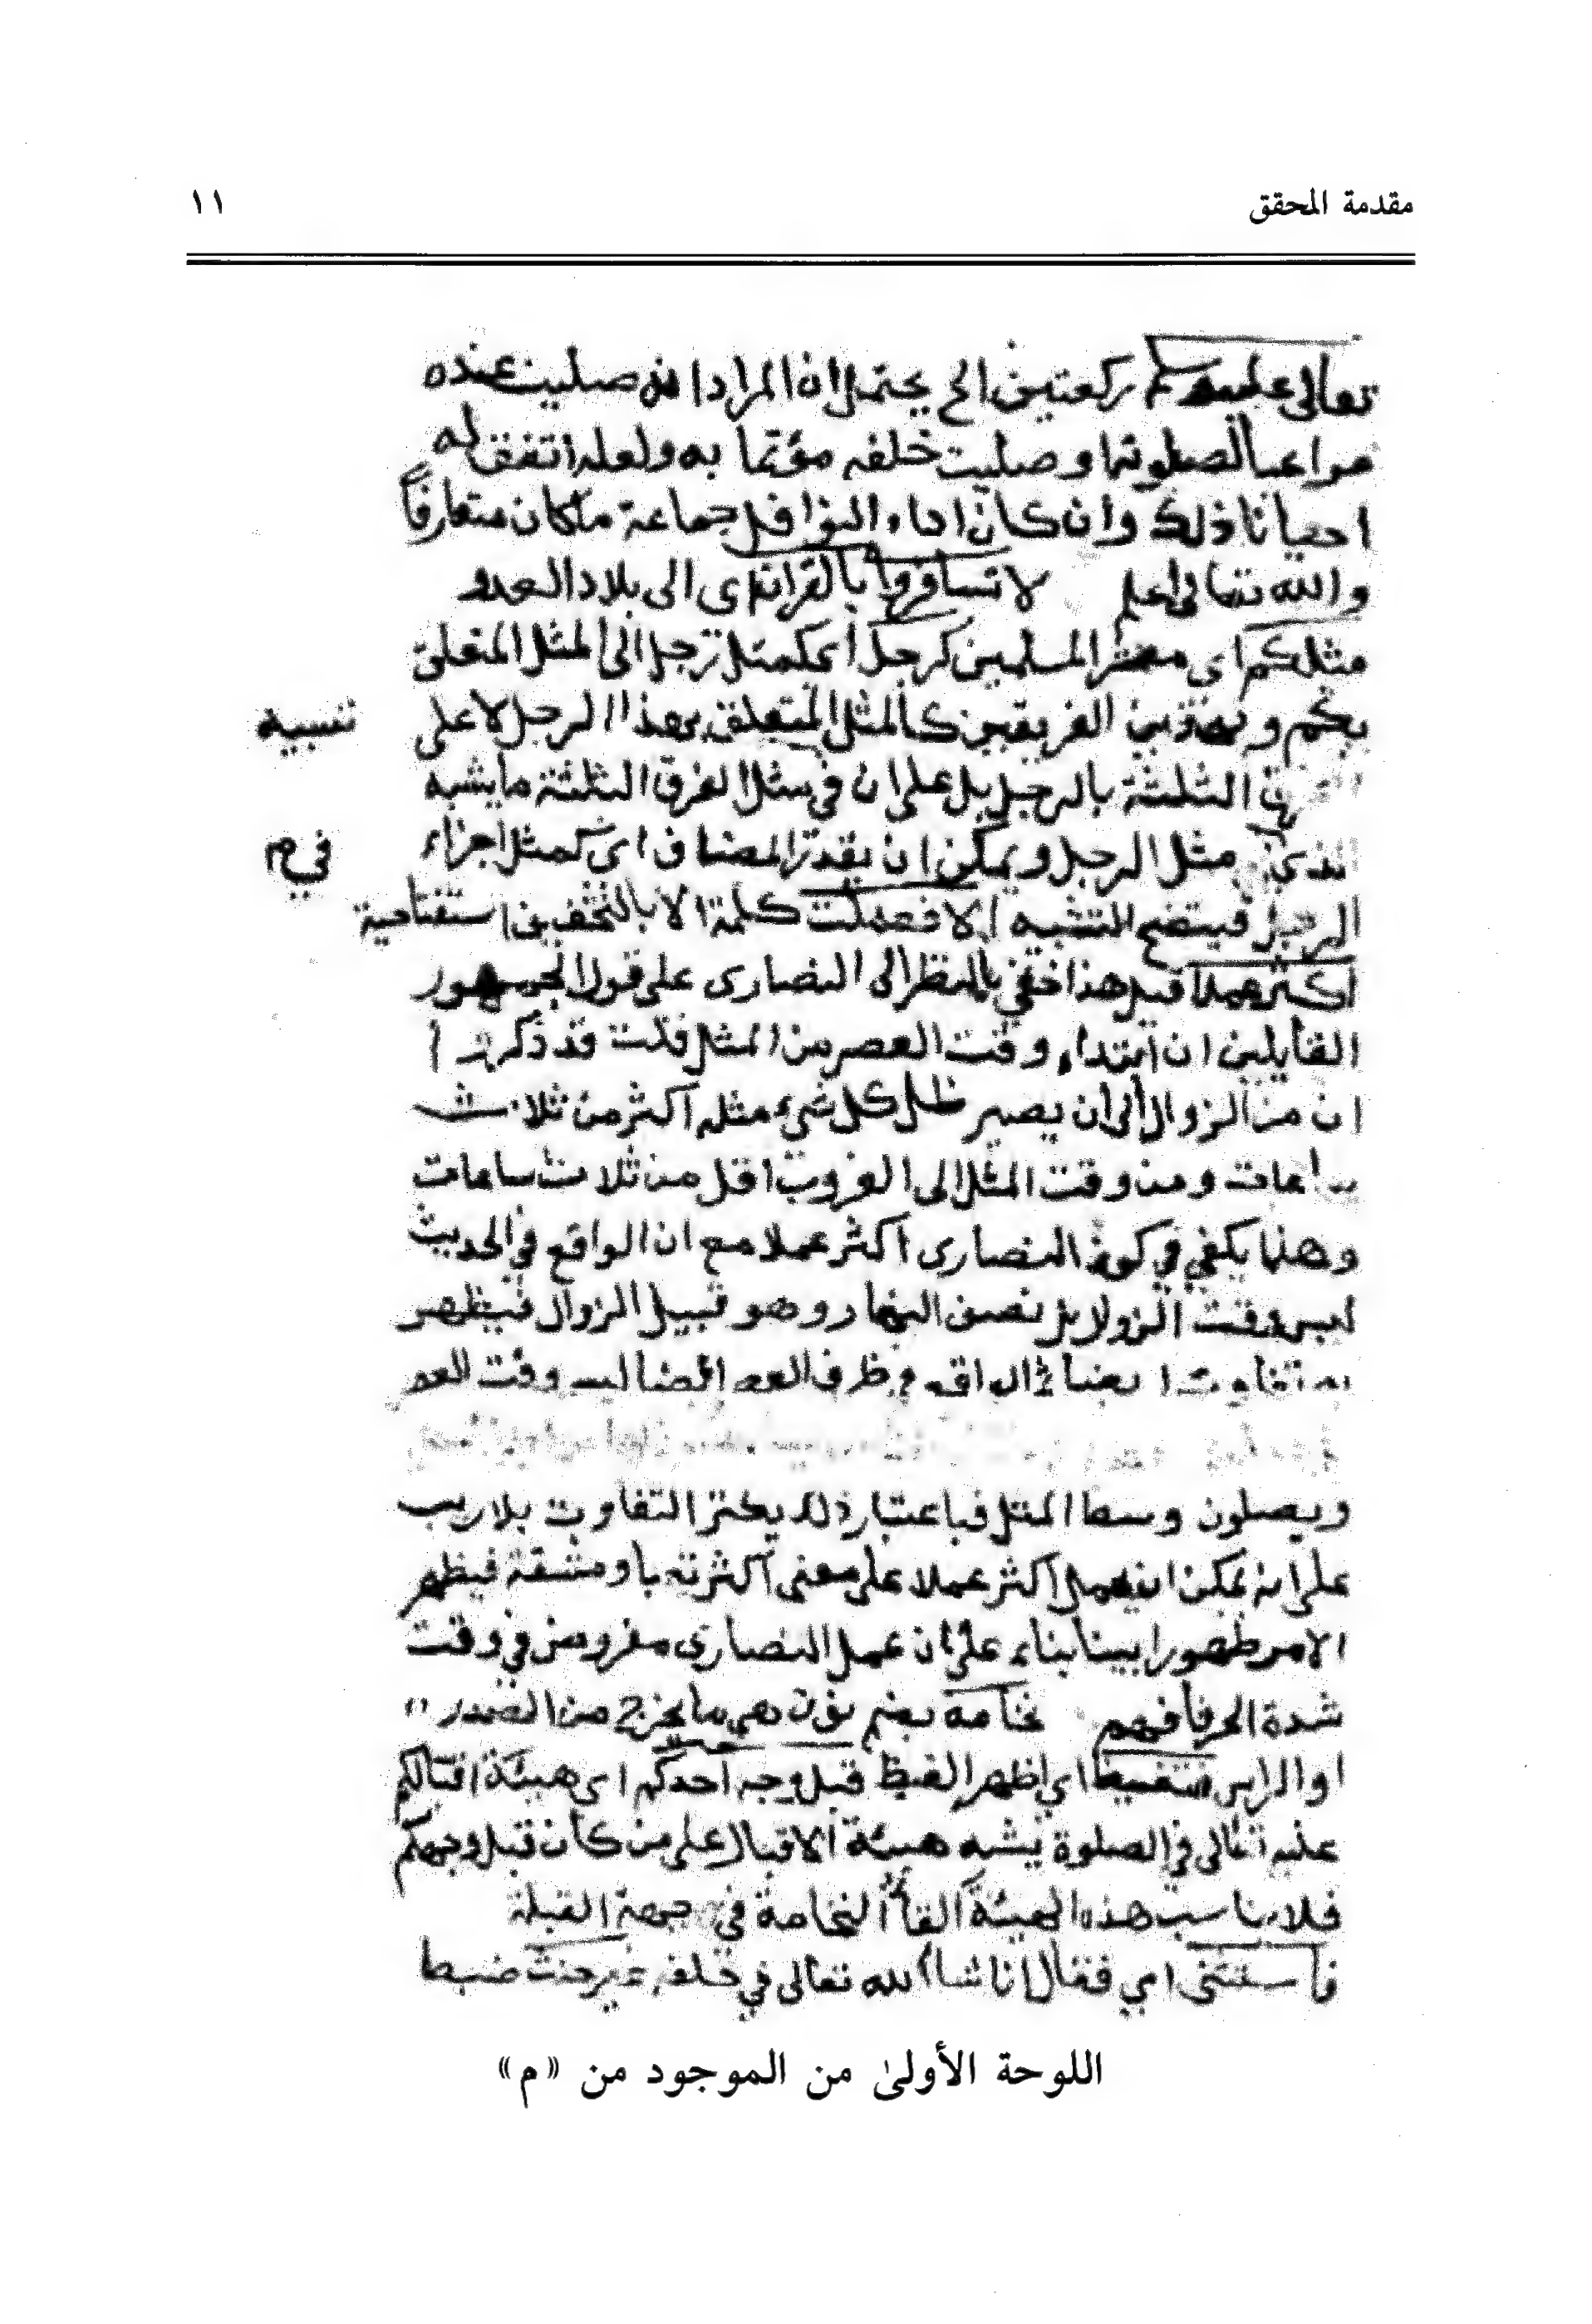 مقدمة المحقق
١١
تعالى عليه وسلم ركعتين الخ يحتمل ان المراد انه صليت عنده
مراعيا لصلوته وصليت خلفه مؤتما به ولعله اتفق له
احيانا ذلك وان كان اداء النوافل جماعة ماكان متعارفاً
والله تعالى اعلم لا تسافروا بالقران اى الى بلاد العدو
مثلكم اى معشر المسلمين كرجل اى كمثل رجل اى المثل المتعلق
بكم وبهذين الفريقين كالمثل المتعلق بهذا الرجل لا على
تشبيه
الثلثة بالرجل بل على ان في مثل الفرق الثلثة ما يشبه
مثل الرجل ويمكن ان يقدر المضاف اى كمثل اجزاء
في م
الرجل فيتضح التشبيه الا فعملت كلمة الا بالتخفيف استفتاحية
اكثر عملا قيل هذا خفي بالنظر الى النصارى على قول الجمهور
القايلين ان ابتداء وقت العصر من المثل قلت قد ذكر
ان من الزوال الى ان يصير ظل كل شيء مثله اكثر من ثلاث
ساعات ومن وقت المثل الى الغروب اقل من ثلاث ساعات
وهذا يكفي في كون النصارى اكثر عملا مع ان الواقع في الحديث
ليس وقت الزول بل نصف النهار وهو قبيل الزوال فيظهر
ايضا الواقع في طرف العصر ايضا ليس وقت العصر
ويصلون وسط المثل فباعتبار ذلك يكثر التفاوت بلا ريب
على انه يمكن ان يحمل اكثر عملا على معنى اكثر تعبا ومشقة فيظهر
الامر ظهورا بينا بناء على ان عمل النصارى مفروض في وقت
شدة الحر فافهم نخامة بضم نون هي ما يخرج من الصدر
او الراس فتغيظ اي اظهر الغيظ قبل وجه احدكم اى هيئة اقبالكم
عليه تعالى في الصلوة يشبه هيئة الاقبال على من كان قبل وجهكم
فلا يناسب هذه الهيئة القاء النخامة في جهة القبلة
فاستثنى اى فقال ان شاء الله تعالى في حلفه غير حنث ضبط
اللوحة الأولى من الموجود من «م»